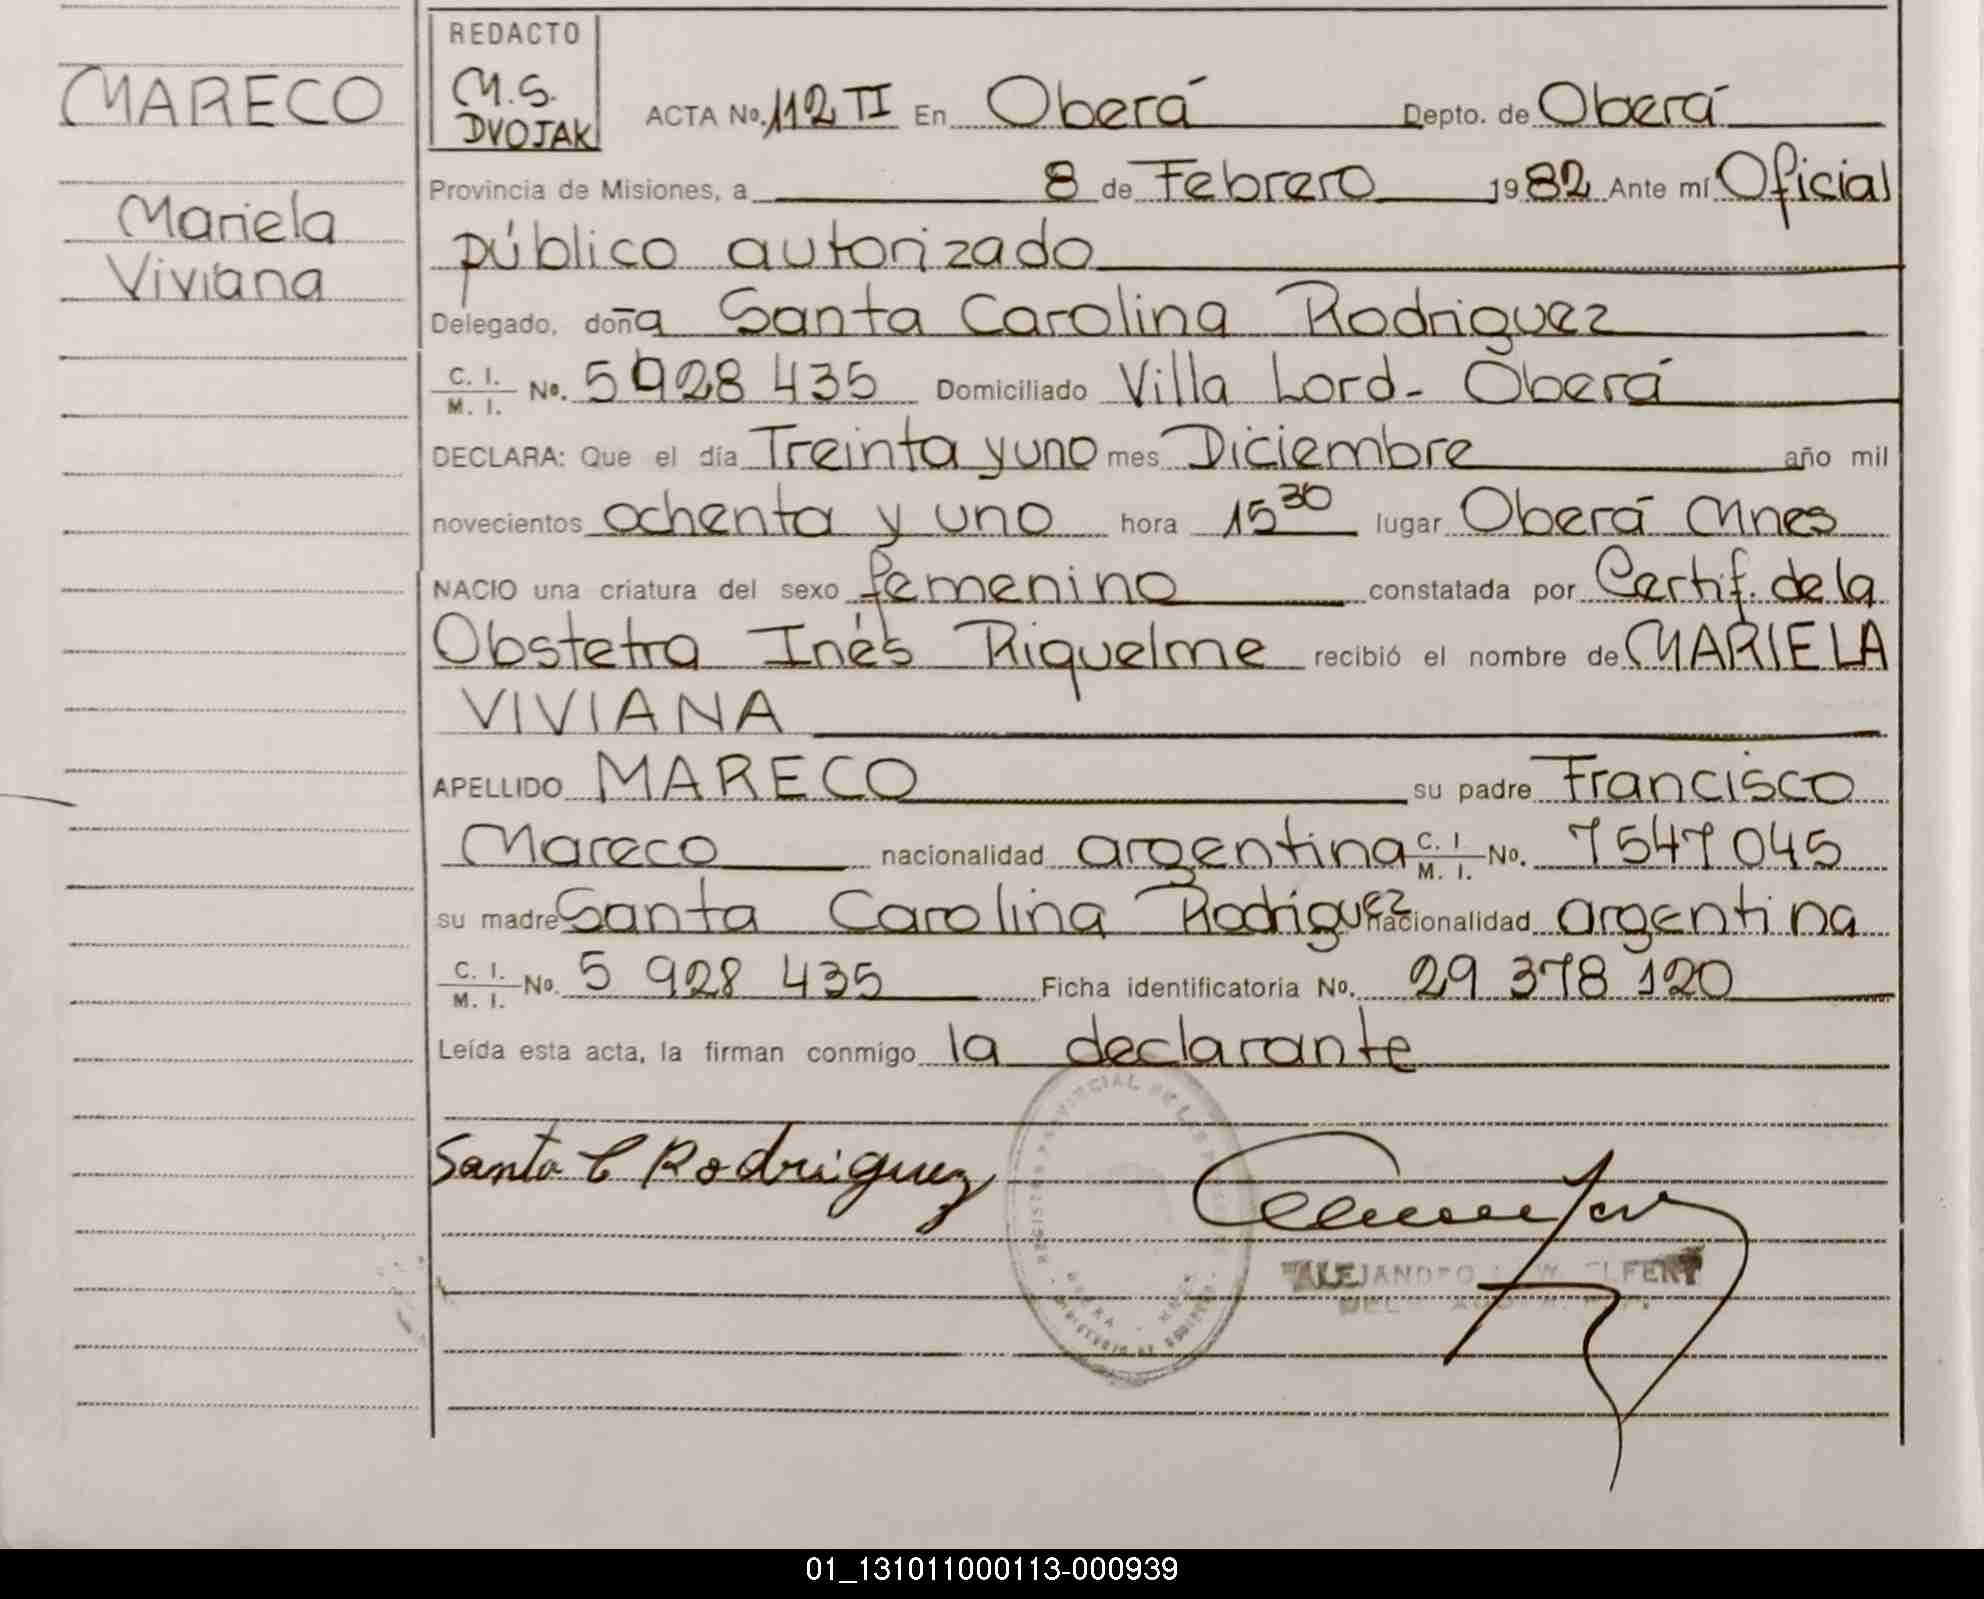 MARECO
Mariela
Viviana
REDACTO
M.S.
DVOJAK
ACTA No. 112 TI En Oberá Depto. de Oberá
Provincia de Misiones, a 8 de Febrero 1982 Ante mí Oficial
público autorizado
Delegado, doña Santa Carolina Rodriguez
C. I. M. I. No. 5928435 Domiciliado Villa Lord - Oberá
DECLARA: Que el día Treinta y uno mes Diciembre año mil
novecientos ochenta y uno hora 15 30 lugar Oberá Mnes
NACIO una criatura del sexo femenino constatada por Certif. de la
Obstetra Inés Riquelme recibió el nombre de MARIELA
VIVIANA
APELLIDO MARECO su padre Francisco
Mareco nacionalidad argentina C. I M. I. No. 7547045
su madre Santa Carolina Rodríguez nacionalidad argentina
C. I. M. I. No. 5 928 435 Ficha identificatoria No. 29 378 120
Leída esta acta, la firman conmigo la declarante
Santa C Rodriguez
ALEJANDRO
01_131011000113-000939